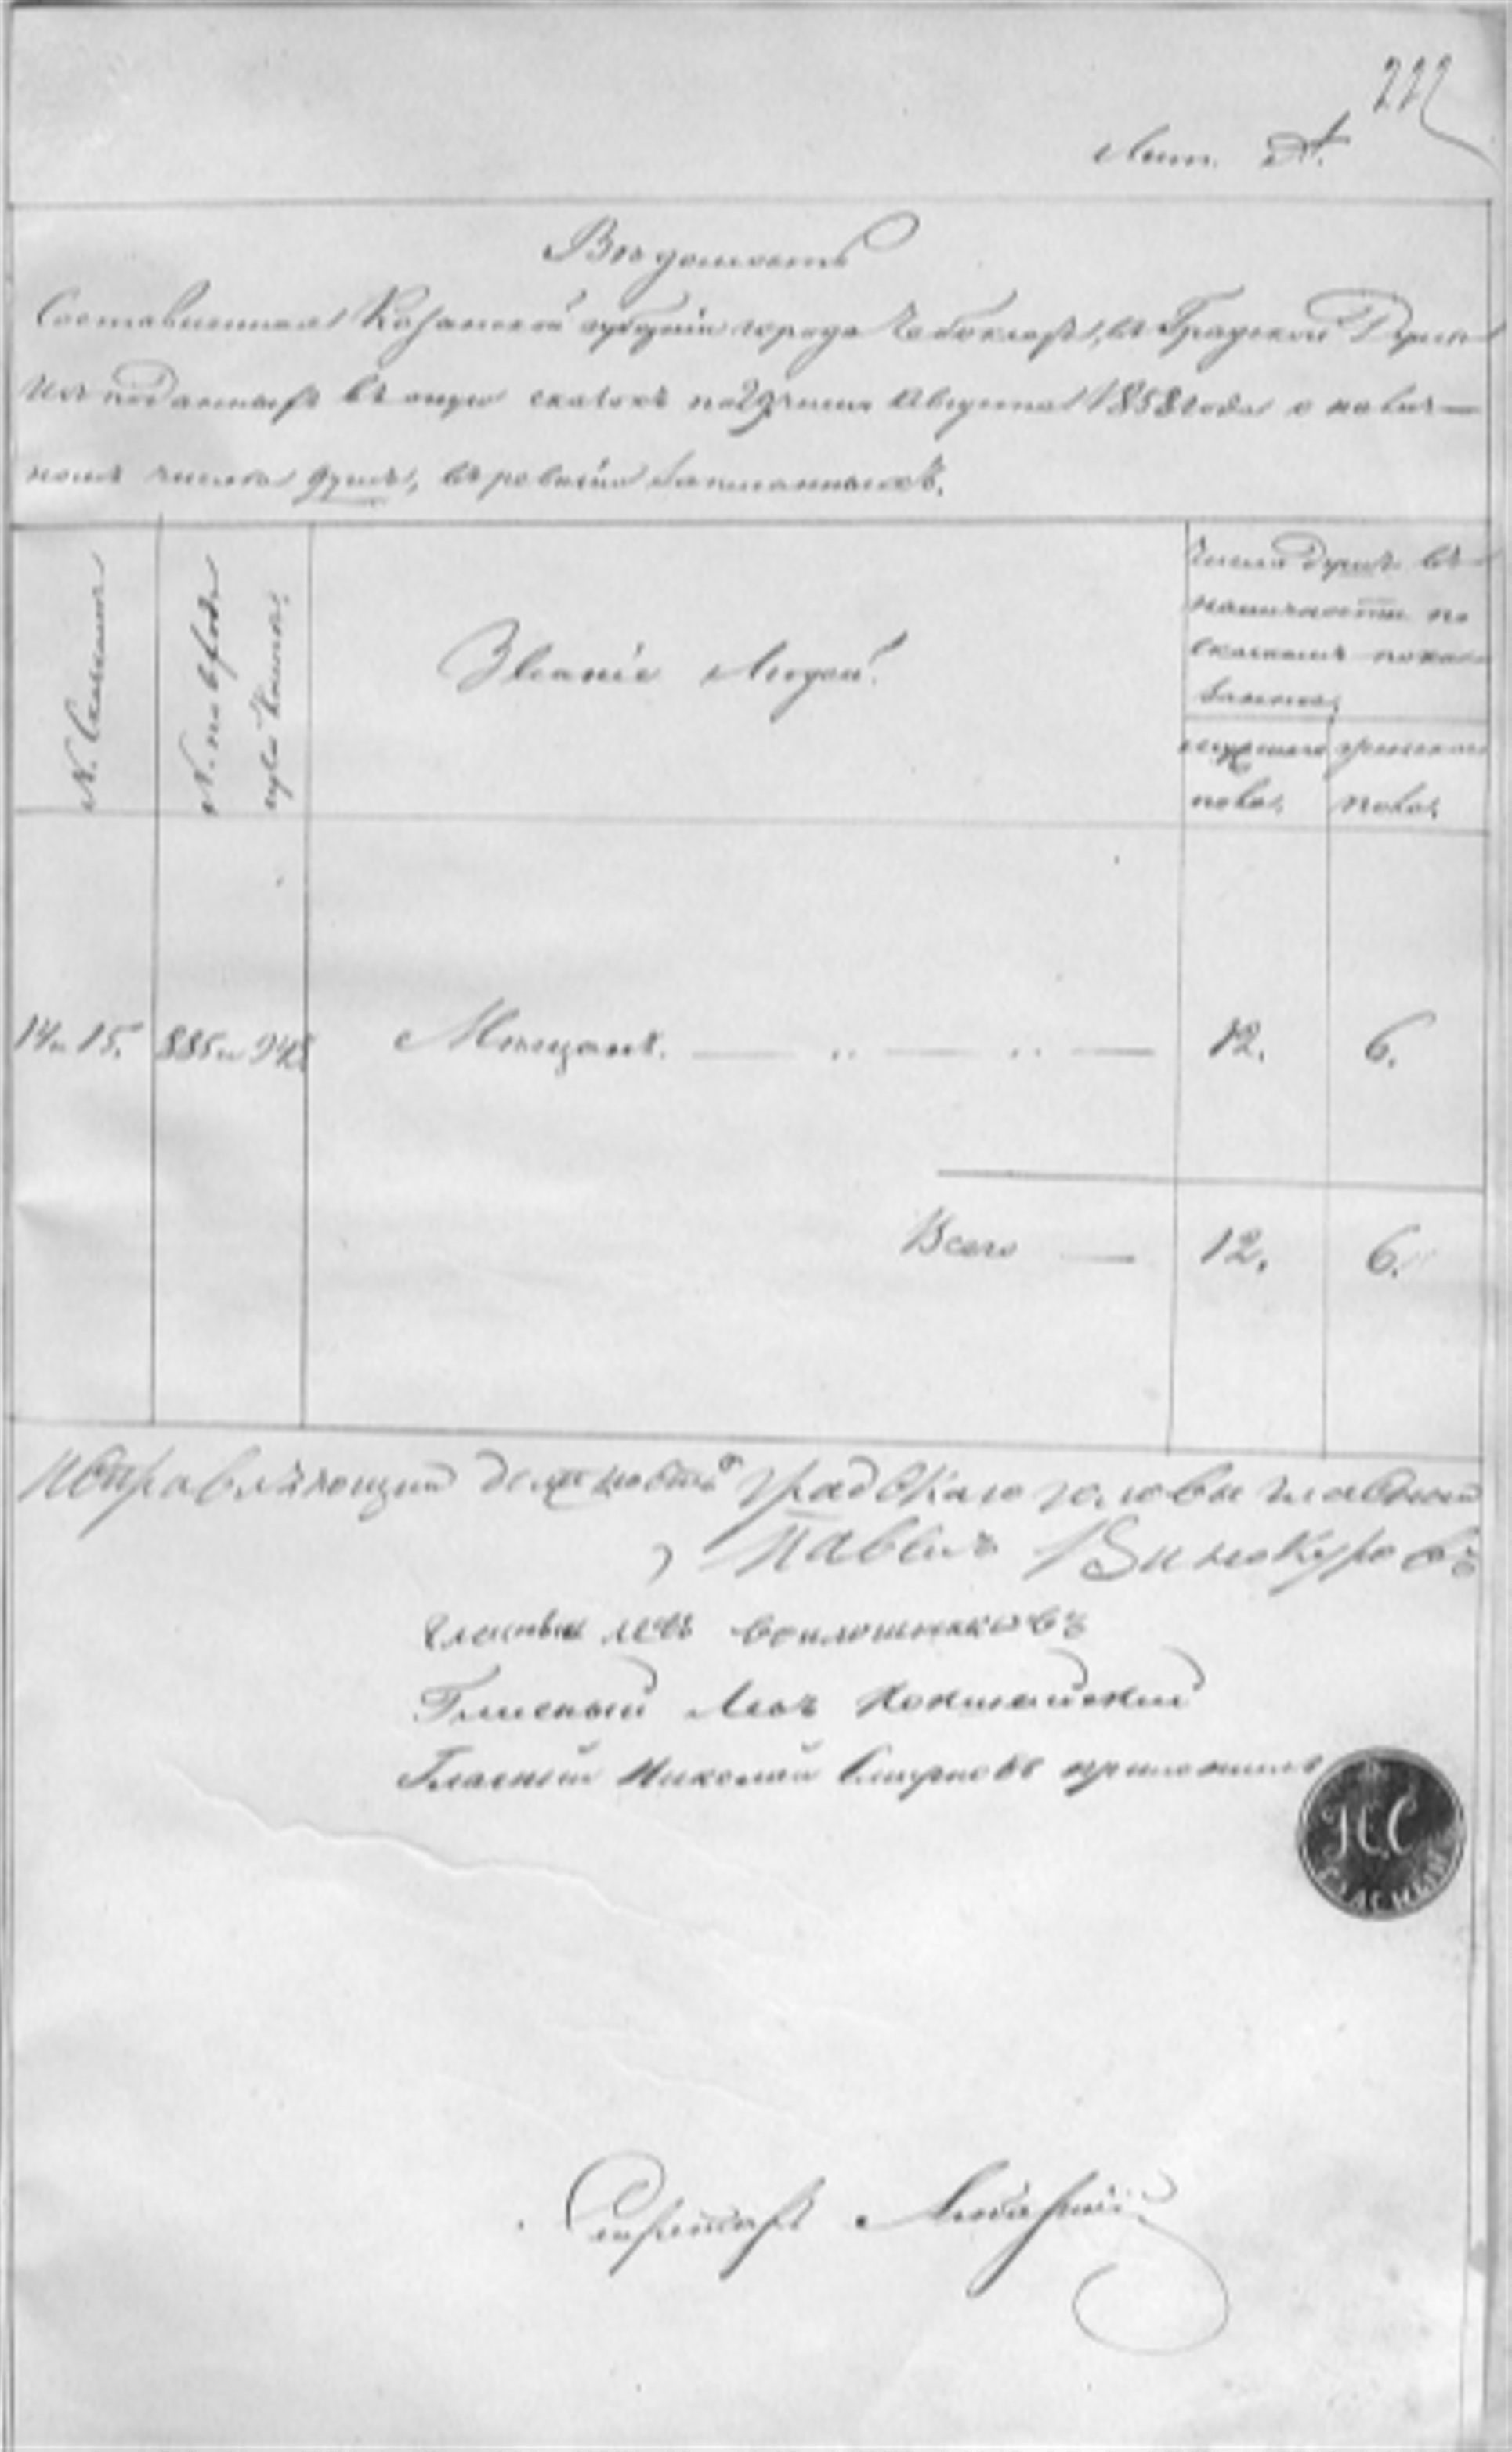 222
Лит. А.
Вѣдомость
Составленная Казанской губерніи города Чебоксаръ, въ Градской Думѣ
Изъ поданныхъ въ оную сказокъ по 29 число Августа 1858 года о налич-
номъ числѣ душъ, въ ревизію записанныхъ.
№. Сказкамъ
№. по
Званіе Людей.
Число душъ въ
наличности по
сказкамъ пока-
занное.
мужеска женска
пола, пола,
14 и 15. 885 и 942 Мѣщанъ. 12. 6.
Всего 12. 6.
Исправляющий должность градскаго головы гласной
Павелъ Винокуровъ
Гласный левъ
Гласный Левъ Кокшайский
Гласный Николай Смирновъ приложилъ
Н.С
ГЛАСНЫЙ
Секретарь